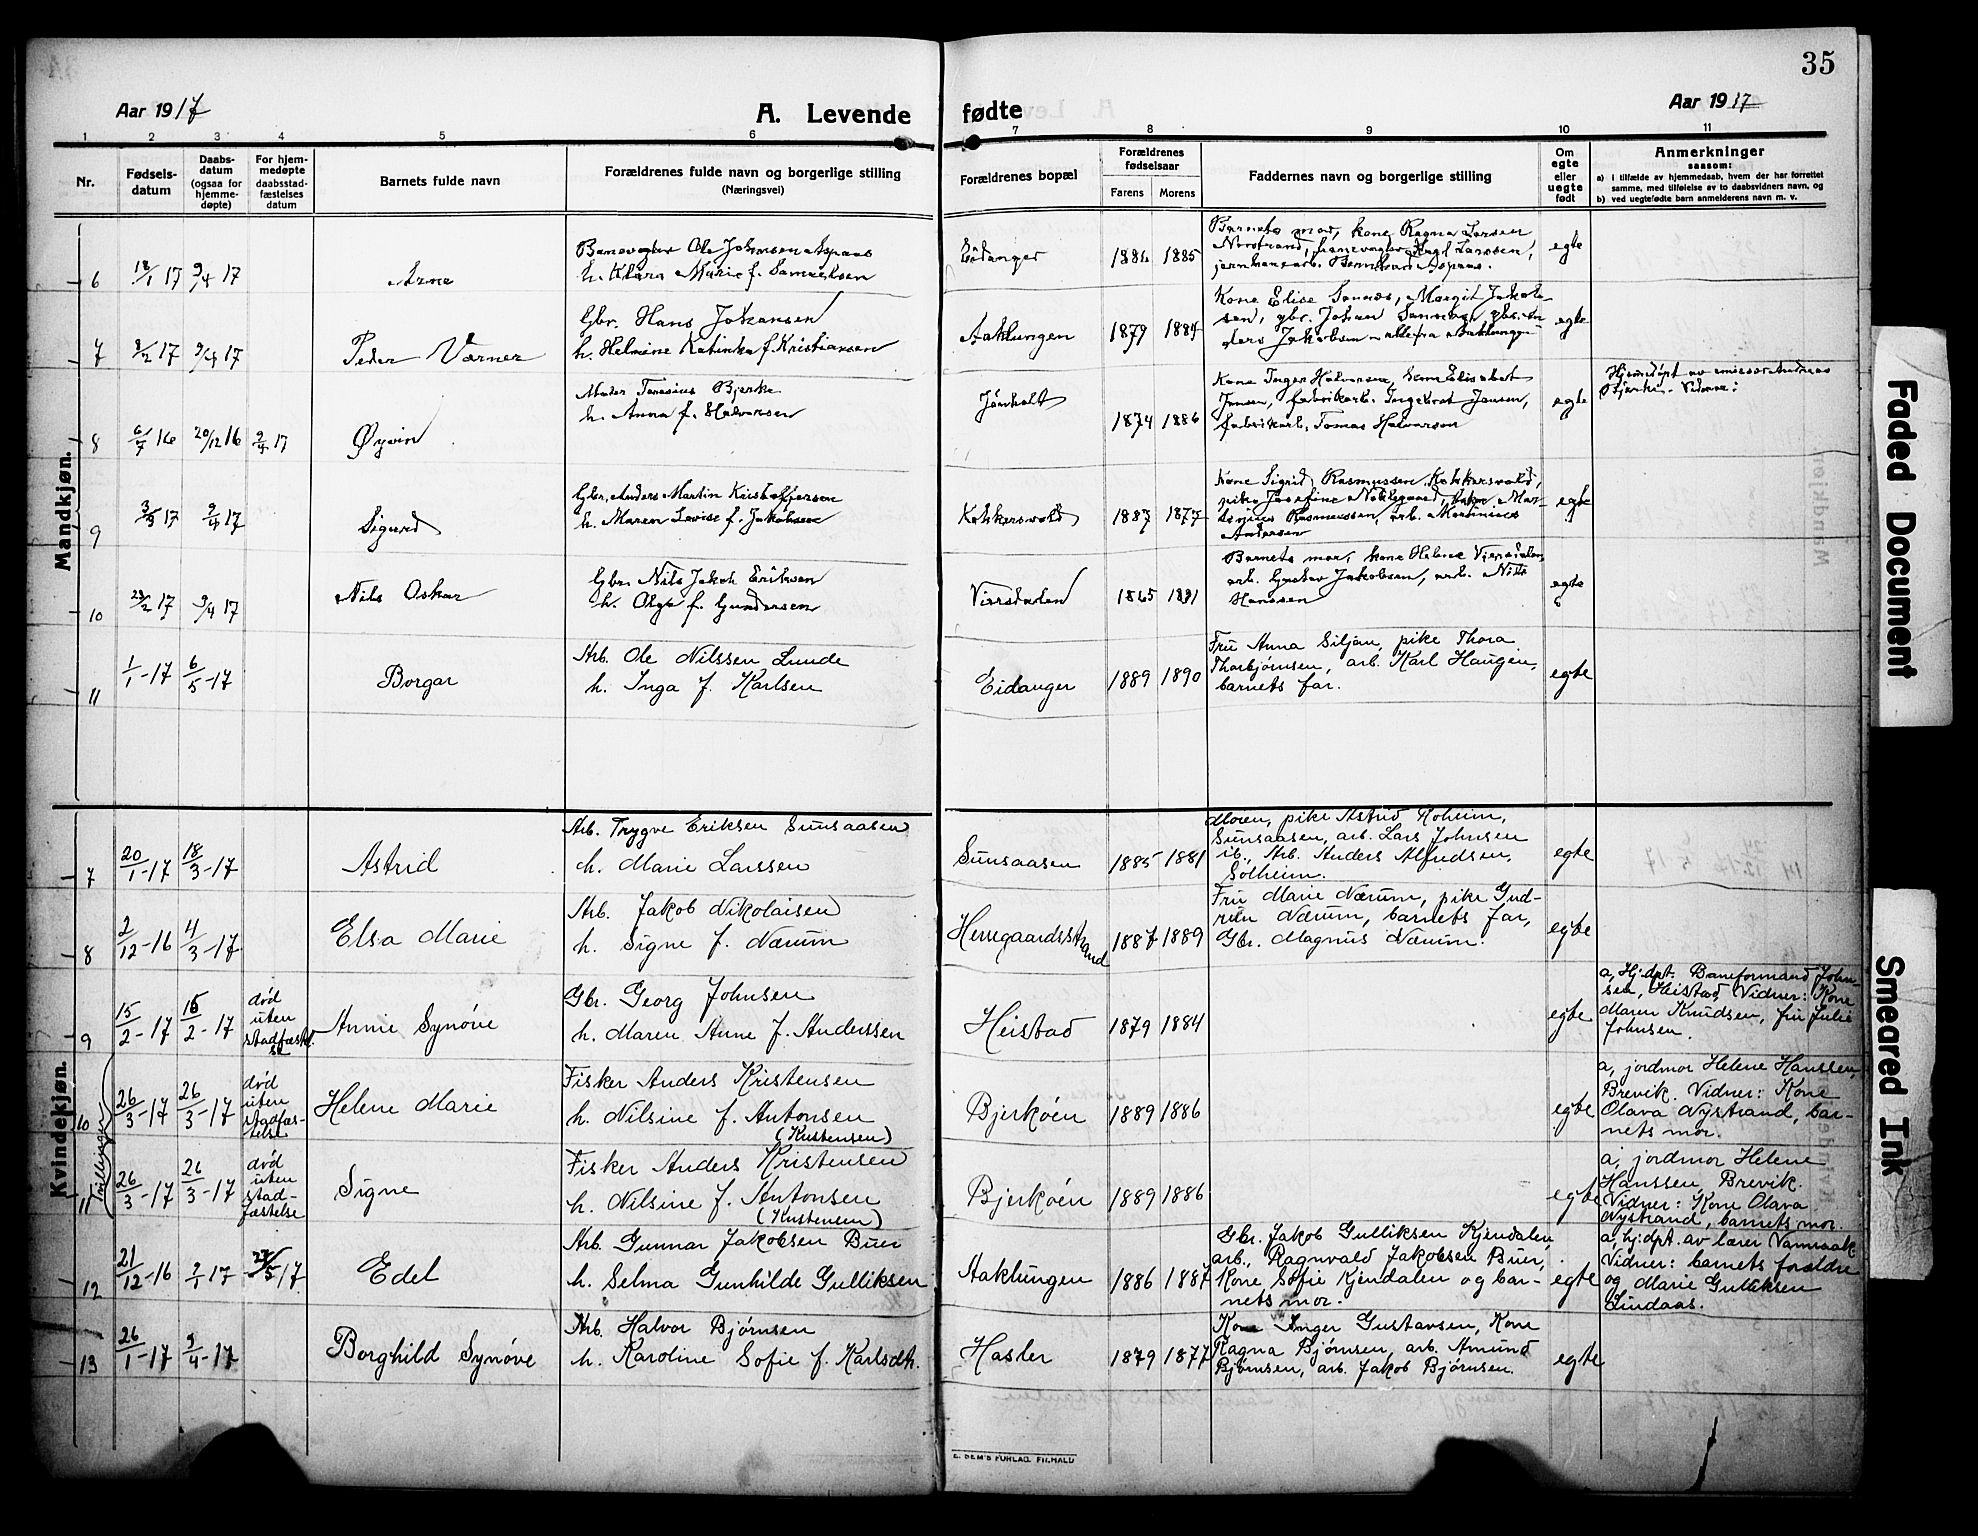 35
Aar 1917
A. Levende
fødte
Aar 1917
1 2 3 4 5 6 7 8 9 10 11
Nr.
Fødsels-
datum
Daabs-
datum
(ogsaa for
hjemme-
døpte)
For hjem-
medøpte
daabsstad-
fæstelses
datum
Barnets fulde navn
Forældrenes fulde navn og borgerlige stilling
(Næringsvei)
Forældrenes bopæl
Forældrenes
fødselsaar
Farens Morens
Faddernes navn og borgerlige stilling
Om
egte
eller
uegte
født
Anmerkninger
saasom:
a) i tilfælde av hjemmedaab, hvem der har forrettet
samme, med tilføielse av to daabsvidners navn, og
b) ved uegtefødte barn anmelderens navn m. v.
Mandkjøn.
6
17 9/4 17
Arne
Banevogter Ole Johnsen Aspaas
h. Klara Marie f. Samuelsen
Eidanger
1886 1885
Barnets mor, kone Ragna Larsen
Nordstrand, banevogter Karl Larssen,
jernbanearb. Bernhard Aspaas.
egte
7
8/2 17 9/4 17
Peder Værner
Gbr. Hans Johansen
h. Helmine Katinka f. Kristiansen
Aaklungen
1879 1884
Kone Elise Sannes, Margit Jakob-
sen, gbr. Johan Sannes, gbr. An-
ders Jakobsen - alle fra Aaklungen
egte
8
6/7 16 20/12 16 9/4 17
Øyvin
Maler Tomasius Bjerke
h. Anna f. Halvorsen
Jønholt
1874 1886
Kone Inger Halvorsen, Elisabet
Jansen, fabrikarb. Ingebret Jansen,
fabrikarb. Tomas Halvorsen
egte
Hjemdøpt av emissær Andreas
Bjerke. Vidner:
9
3/3 17 9/4 17
Sigurd
Gbr. Anders Martin Kristoffersen
h. Maren Lovise f. Jakobsen
Kokkersvold
1887 1877
Kone Sigrid Rasmussen Kokkersvold,
pike Josefine Noklegaard, Mar-
tinius Rasmussen, arb. Martinius
Andersen
egte
10
23/2 17 9/4 17
Nils Oskar
Gbr. Nils Jakob Eriksen
h. Olga f. Gundersen
Viersdalen
1865 1881
Barnets mor, kone Helene Viersdalen,
arb. Gustav Jakobsen, arb. Nils
Hanssen
egte
11
1/1-17 6/5-17
Borgar
Arb. Ole Nilssen Lunde
h. Inga f. Karlsen
Eidanger
1889 1890
Fru Anna Siljan, pike Thora
Thorbjørnsen, arb. Karl Haugen,
barnets far.
egte
Kvindekjøn.
7
20/1-17 18/3-17
Astrid
Arb. Trygve Eriksen Sunsaasen
h. Marie Larssen
Sunsaasen
1885 1881
Moren, pike Astrid Roheim,
Sunsaasen, arb. Lars Johnsen
ib., Arb. Anders Alfredsen,
Solheim.
egte
8
2/12-16 4/3-17
Elsa Marie
Arb. Jakob Nikolaisen
h. Signe f. Nærum
Herregaardsstrand
1887 1889
Fru Marie Nærum, pike Gud-
run Nærum, barnets far,
Gbr. Magnus Nærum.
egte
9
15/2-17 15/2-17
død
uten
stadfæstel
se
Anne Synøve
Gbr. Georg Johnsen
h. Maren Anne f. Anderssen
Heistad
1879 1884
egte
a, Hj.dpt. Baneformand John-
sen, Heistad, Vidner: Kone
Maren Knudsen, fru Julie
Johnsen.
Tvillinger
10
26/3-17 26/3-17
død
uten
stadfæs-
telse
Helene Marie
Fisker Anders Kristensen
h. Nilsine f. Antonsen
(Kristensen)
Bjerkøen
1889 1886
egte
a, jordmor Helene Hanssen,
Brevik. Vidner: Kone
Olava Nystrand, bar-
nets mor.
11
26/3-17 26/3-17
død
uten
stad-
fæstelse
Signe
Fisker Anders Kristensen
h. Nilsine f. Antonsen
(Kristensen)
Bjerkøen
1889 1886
egte
a, jordmor Helene
Hanssen, Brevik.
Vidner: Kone Olava
Nystrand, barnets mor.
12
21/12-16 2/1-17 27/5-17
Edel
Arb. Gunnar Jakobsen Buer
h. Selma Gunhilde Gulliksen
Aaklungen
1886 1887
Gbr. Jakob Gulliksen Kjendalen,
arb. Ragnvald Jakobsen Buer,
Kone Sofie Kjendalen og bar-
nets mor.
egte
a, hj:dpt. av lærer
Vidner: barnets forældre
og Marie Gulliksen
Lindaas.
13
26/1-17 9/4-17
Borghild Synøve
Arb. Halvor Bjørnsen
h. Karoline Sofie f. Karlsdt.
Hasler
1879 1877
Kone Inger Gustavsen, Kone
Ragna Bjørnsen, arb. Amund
Bjørnsen, arb. Jakob Bjørnsen.
egte
E. SEM'S FORLAG, FR.HALD
Faded Document
Smeared Ink